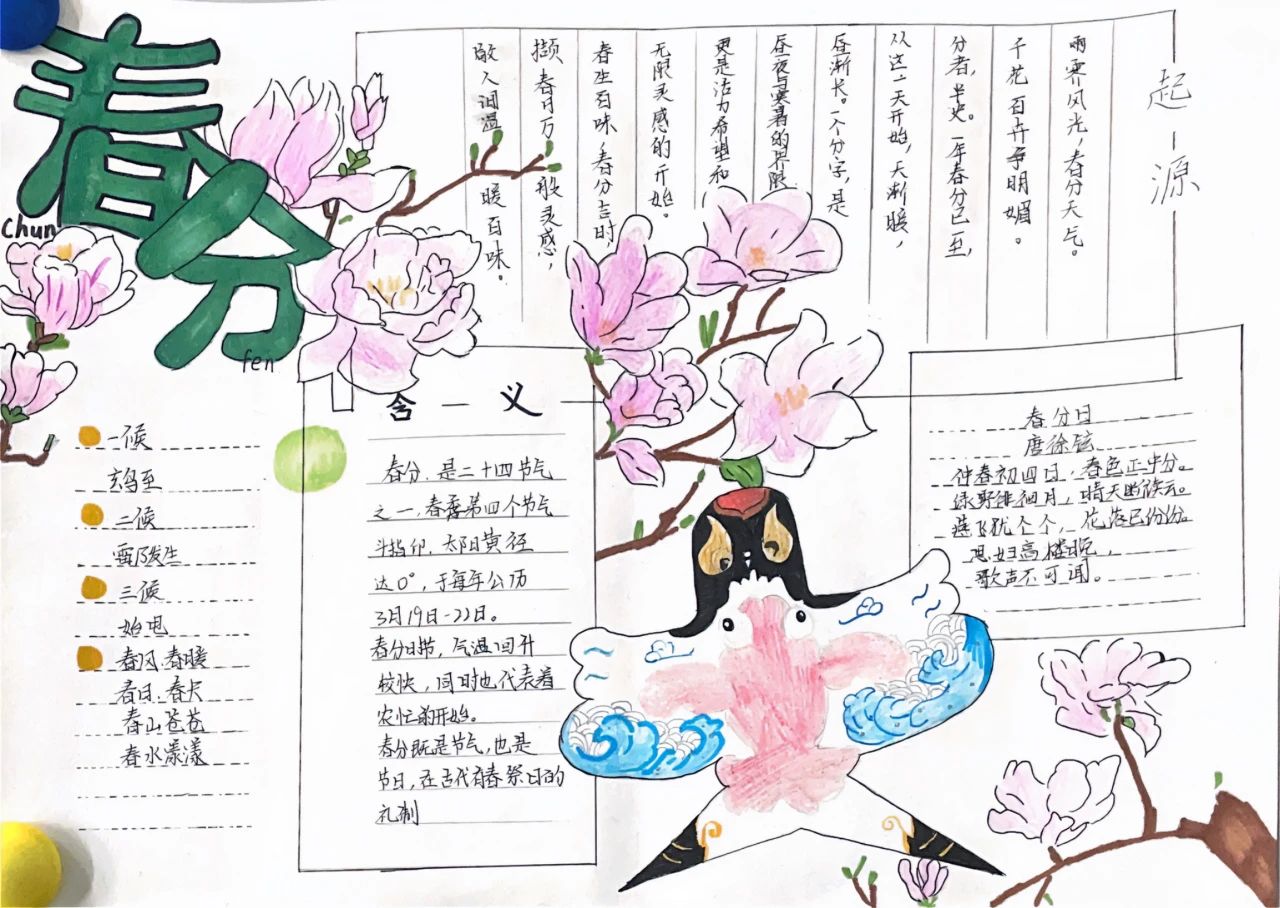 春分
chun
fen
起源
雨霁风光,春分天气。
千花百卉争明媚。
分者,半史。一年春分已至,
从这一天开始,天渐暖,
昼渐长。一个分字,是
昼夜与寒暑的界限
更是活力希望和
无限灵感的开始。
春生百味,春分吉时,
撷春日万般灵感,
敬人润温暖百味。
一候
玄鸟至
二候
雷乃发生
三候
始电
春风.春暖
春日.春长
春山苍苍
春水漾漾
含一义
春分,是二十四节气
之一,春季第四个节气
斗指卯,太阳黄径
达0°,于每年公历
3月19日-22日。
春分时节,气温回升
较快,同时也代表着
农忙的开始。
春分既是节气,也是
节日,在古代有春祭日的
礼制
春分日
唐徐铉
仲春初四日,春色正中分。
绿野徘徊月,晴天断续云。
燕飞犹个个,花落已纷纷。
思妇高楼晚,
歌声不可闻。